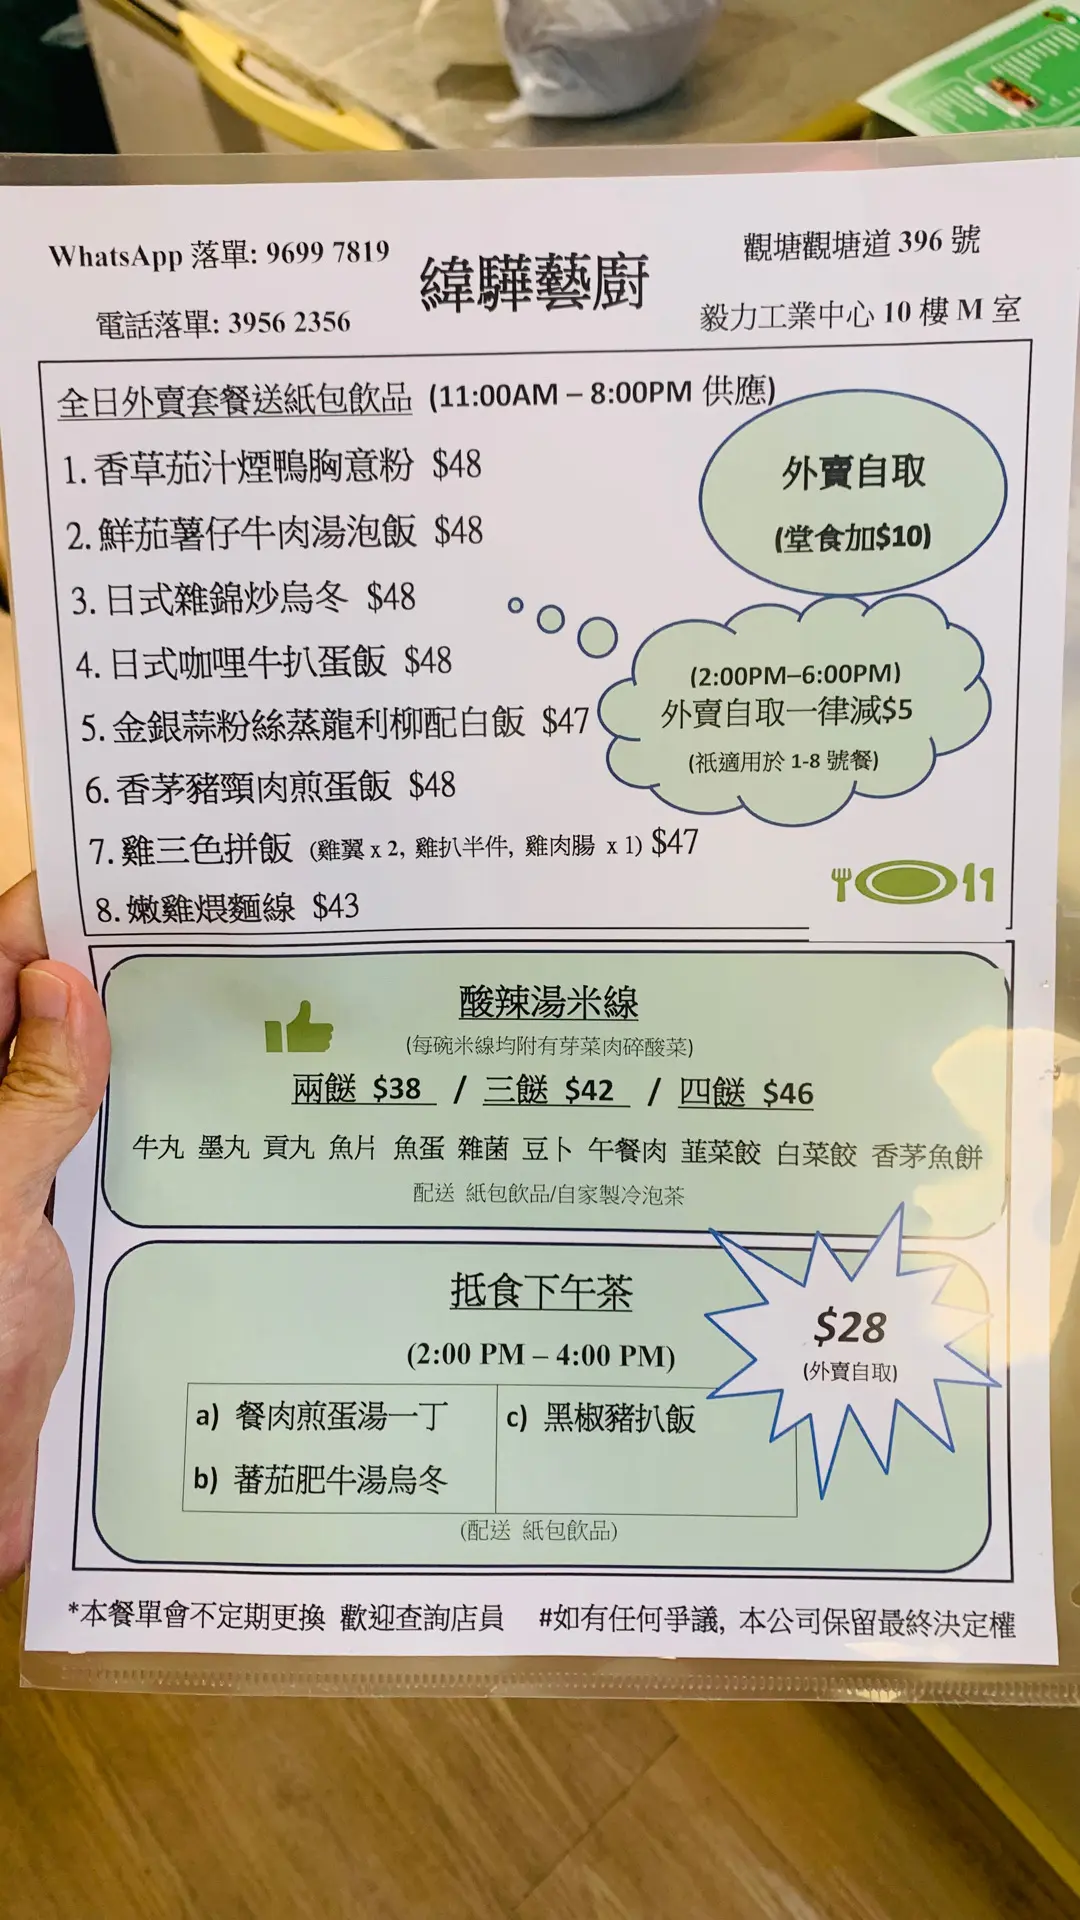 WhatsApp 落單: 9699 7819
電話落單: 3956 2356
緯驊藝廚
觀塘觀塘道 396 號
毅力工業中心 10 樓 M 室
全日外賣套餐送紙包飲品 (11:00AM – 8:00PM 供應)
1. 香草茄汁煙鴨胸意粉 $48
2. 鮮茄薯仔牛肉湯泡飯 $48
3. 日式雜錦炒烏冬 $48
4. 日式咖哩牛扒蛋飯 $48
5. 金銀蒜粉絲蒸龍利柳配白飯 $47
6. 香茅豬頸肉煎蛋飯 $48
7. 雞三色拼飯 (雞翼 x 2, 雞扒半件, 雞肉腸 x 1) $47
8. 嫩雞煨麵線 $43
外賣自取
(堂食加$10)
(2:00PM–6:00PM)
外賣自取一律減$5
(祇適用於 1-8 號餐)
酸辣湯米線
(每碗米線均附有芽菜肉碎酸菜)
兩餸 $38 / 三餸 $42 / 四餸 $46
牛丸 墨丸 貢丸 魚片 魚蛋 雜菌 豆卜 午餐肉 韮菜餃 白菜餃 香茅魚餅
配送 紙包飲品/自家製冷泡茶
抵食下午茶
(2:00 PM – 4:00 PM)
$28
(外賣自取)
a) 餐肉煎蛋湯一丁
b) 蕃茄肥牛湯烏冬
c) 黑椒豬扒飯
(配送 紙包飲品)
*本餐單會不定期更換 歡迎查詢店員 #如有任何爭議, 本公司保留最終決定權